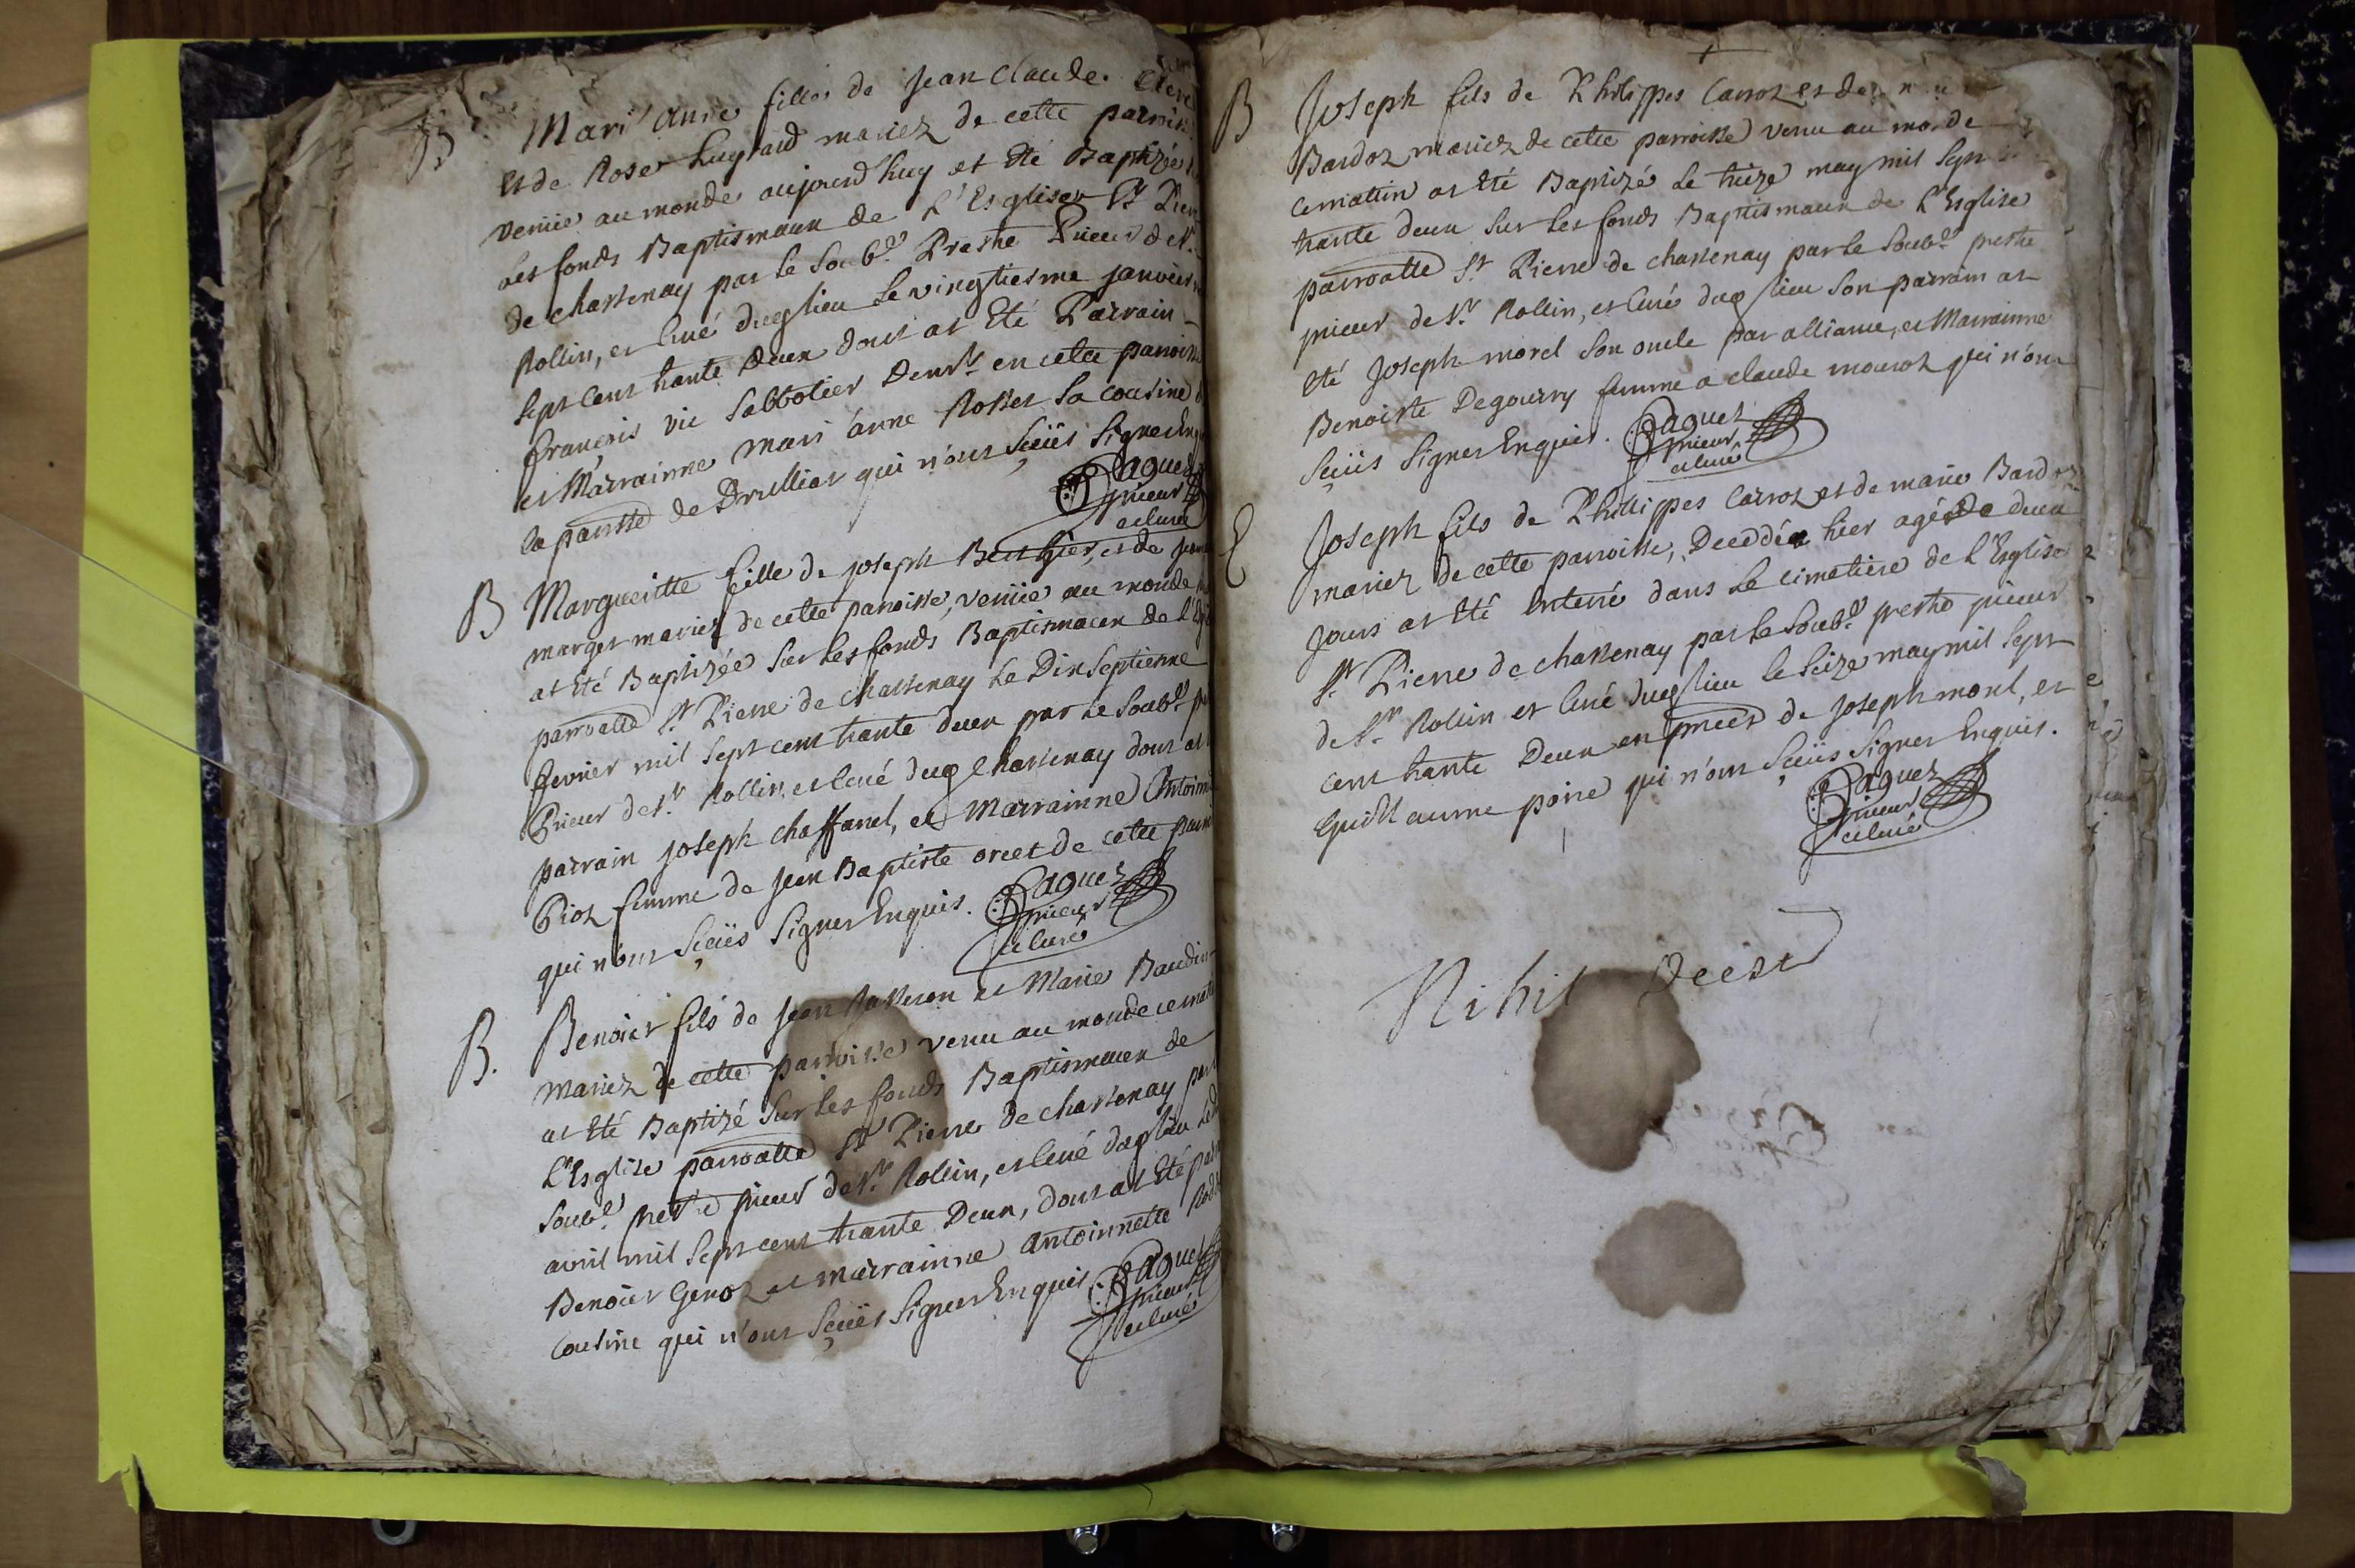 B
Mari anne fille de Jean Claude Clerc
et de Rose hugrard mariez de cette parroisse
venüe au monde aujourd'huy et Eté Baptizée
les fonds Baptismaux de L'Esglise St Pierre
de chastenay par le soub.d Prestre Prieur de St.
Rollin, et curé dudlieu le vingtiesme janvier
sept cent trante deux dont at Eté Parrain
françois vic sabbotier Demt. en cette parroisse
et Marrainne mari anne Rosset sa cousine
la parroisse de Drullier qui n'ont sçeüs signer Enquis
Paquet
prieur
et curé
B Margueritte fille de joseph Berthier, et de
marger mariez de cette parroisse, venüe au monde
at Eté Baptizée sur les fonds Baptismaux de L'
parroalle St. Pierre de chastenay le Dixseptieme
fevrier mil sept cent trante deux par le soub.d
Prieur de St. Rollin, et curé dud chastenay dont at
parrain joseph chaffanel, et Marrainne Antoine
Piot femme de jean Baptiste orcet de cette
qui n'ont sçeüs signer Enquis. Paquet
prieur
et curé
B. Benoist fils de jean et Marie Baudin
mariez de cette parroisse venu au monde ce matin
at Eté Baptizé sur les fonds Baptismaux de
L'Esglise parroalle St Pierre de chastenay par
soub.d prestre prieur de St. Rollin, et curé dud lieu
avril mil sept cent trante Deux, dont at Eté
Benoist Genot et marrainne antoinnette
cousine qui n'ont sçeüs signer Enquis. Paquet
prieur
et curé
B Joseph fils de Philippes Carrot et de
Bardot mariez de cette parroisse venu au monde
cematin at Eté Baptizé le treize may mil sept
trante deux sur les fonds Baptismaux de L'Esglise
parroalle St Pierre de chastenay par le soub.d prestre
prieur de St. Rollin, et curé dud lieu son parrain at
Eté Joseph morel son oncle par alliance, et Marrainne
Benoiste Degourry femme a claude mourot qui n'ont
sçeüs signer Enquis. Paquet
prieur
et curé
E Joseph fils de Philippes Carrot et de marie Bardot
mariez de cette parroisse, Decedé hier agé de deux
jours at Eté enterré dans le cimetiere de L'Esglise
St. Pierre de chastenay par le soub.d prestre prieur
de St. Rollin et curé dud lieu le seize may mil sept
cent trante Deux en pnces de joseph morel, et
Guillaume poire qui n'ont sçeüs signer Enquis.
Paquet
prieur
et curé
Nihil Deest